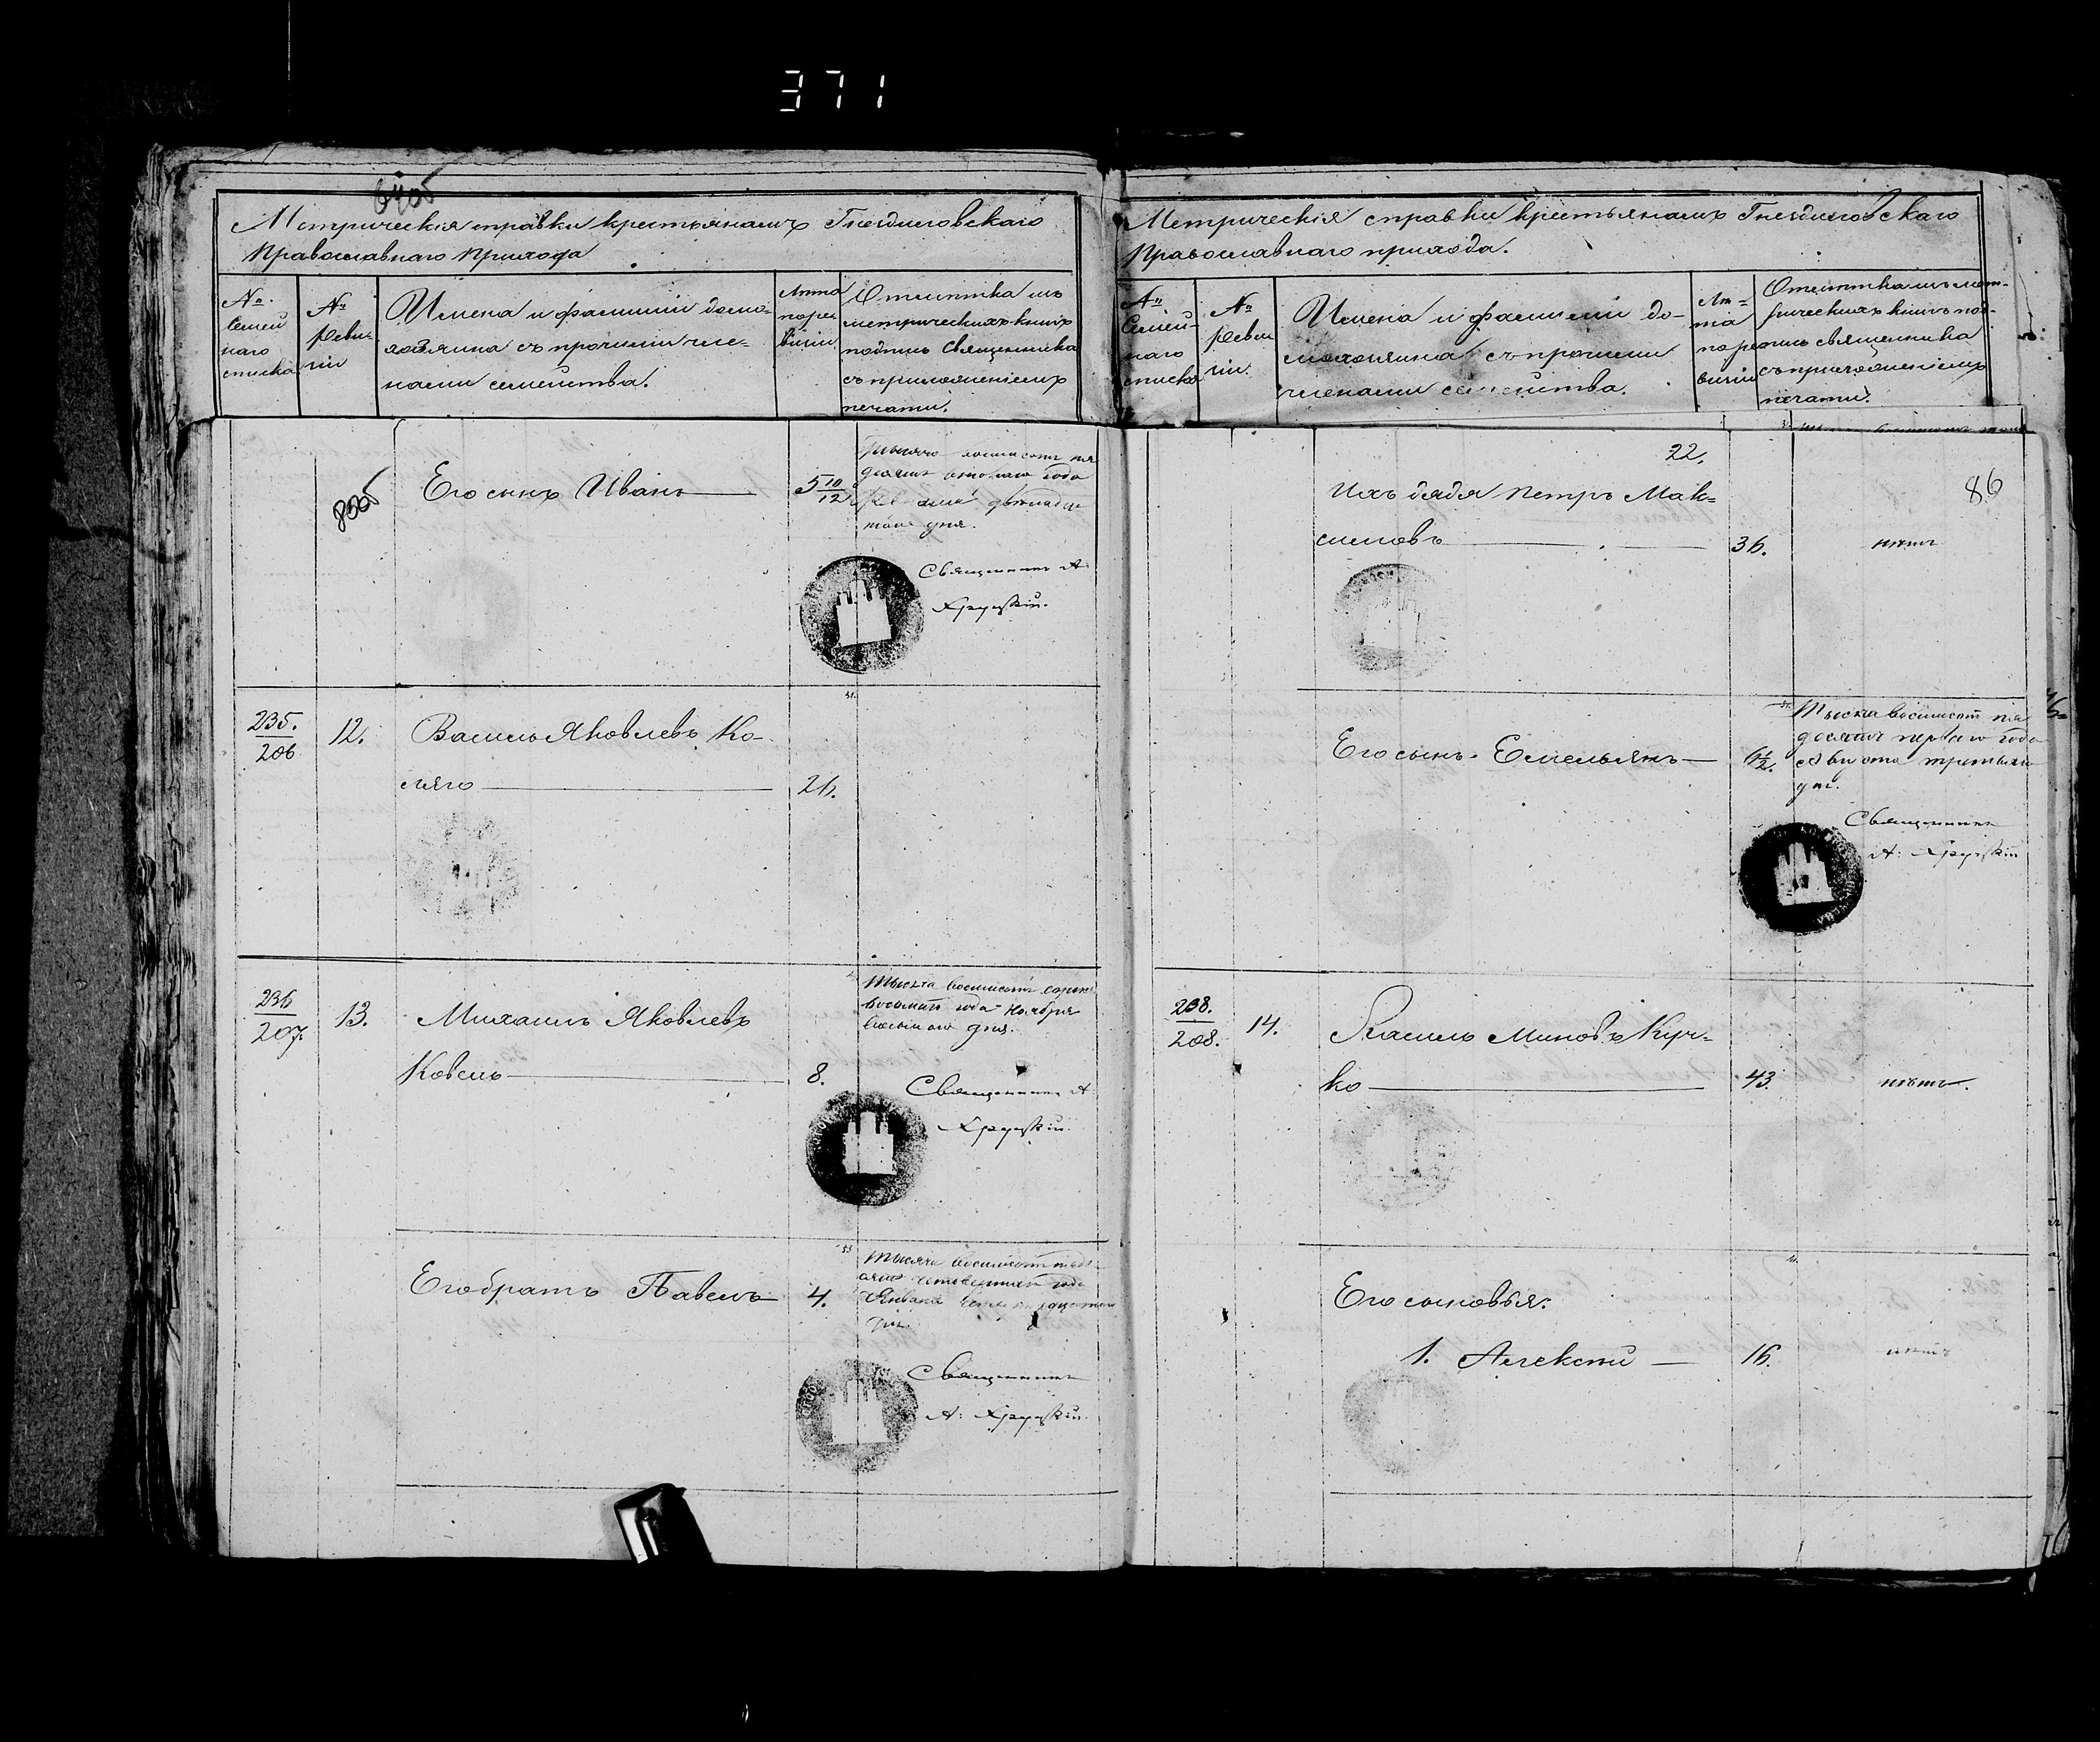 371
Метрическія справки крестьянамъ Гнездиловскаго
Православнаго Прихода
№
Семей
наго
списка
№
Реви-
зіи
Имена и фамиліи домо-
хозяина съ прочими чле-
нами семейства.
Лѣта
по ре
визіи
Отмѣтка изъ
метрическихъ книгъ
подпись Священника
съ приложеніемъ
печати.
85об
Его сынъ Иванъ
5 10/12
тысяча восемьсотъ пя
десятъ втораго года
дня.
Священникъ А.
Хруцкій.
235.
206
12.
Василь Яковлевъ Ко-
ляго
26.
236
207
13.
Михаилъ Яковлевъ
Ковель
8.
Тысяча восемьсотъ сорокъ
восьмаго года Ноября
восьмаго дня.
Священникъ А.
Хруцкій.
Его братъ Павелъ
4.
Тысяча восемьсотъ пядь
года
Января
дня.
Священникъ
А. Хруцкій.
Метрическія справки крестьянамъ Гнездиловскаго
Православнаго прихода.
№
Семей-
наго
списка
№
Реви
зіи.
Имена и фамиліи до-
мохозяина съ прочими
членами семейства.
Лѣ-
та
по ре
визіи
Отмѣтка изъ мет-
рическихъ книгъ под-
пись священника
съ приложеніемъ
печати.
22.
86
Ихъ дядя Петръ Мак-
симовъ
36.
нѣтъ
Его сынъ Емельянъ
6 1/2.
Тысяча восемьсотъ пя
десятъ перваго года
Августа третьяго
дня.
Священникъ
А. Хруцкій
238.
208.
14.
Василь Миновъ Куч-
ко
43.
нѣтъ.
Его сыновья:
1. Алексѣй
16.
нѣтъ